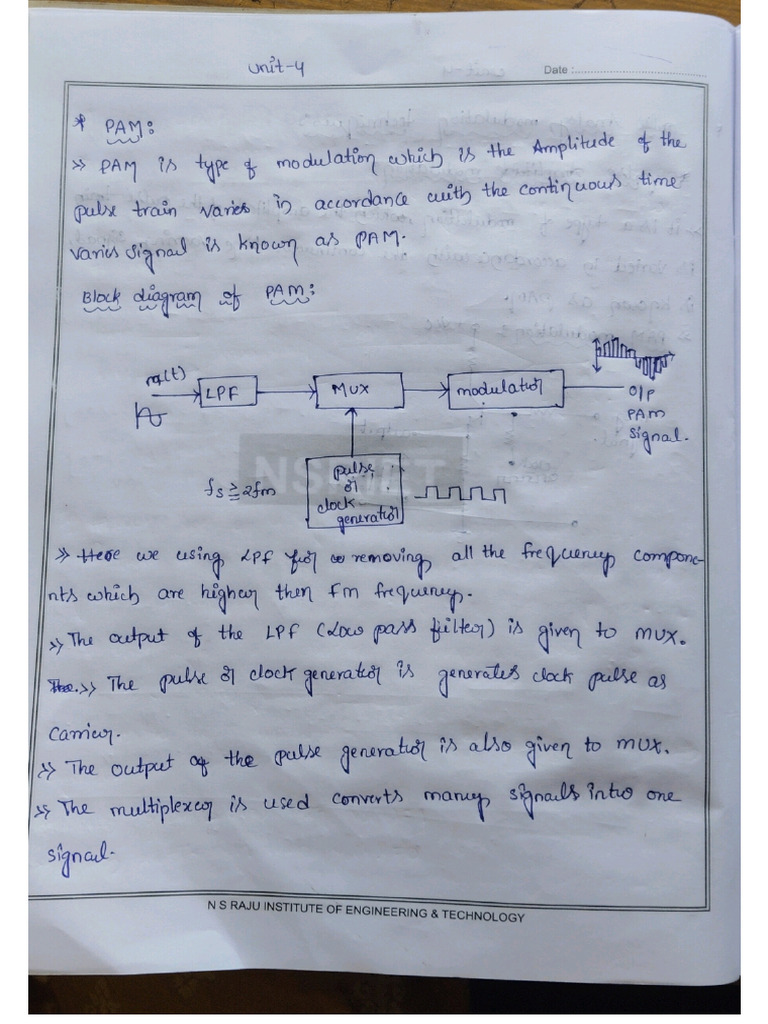 Unit-4
Date :
* PAM:
>> PAM is type of modulation which is the Amplitude of the
pulse train varies in accordance with the continuous time
varies signal is known as PAM.
Block diagram of PAM:
m(t)
LPF
MUX
modulator
O/P
PAM
signal.
fs ≥ 2fm
pulse
or
clock
generator
NSRIET
>> Here we using LPF for removing all the frequency compone-
nts which are higher then fm frequency.
>> The output of the LPF (Low pass filter) is given to MUX.
>> The pulse or clock generator is generates clock pulse as
carrier.
>> The output of the pulse generator is also given to MUX.
>> The multiplexer is used converts many signals into one
signal.
N S RAJU INSTITUTE OF ENGINEERING & TECHNOLOGY